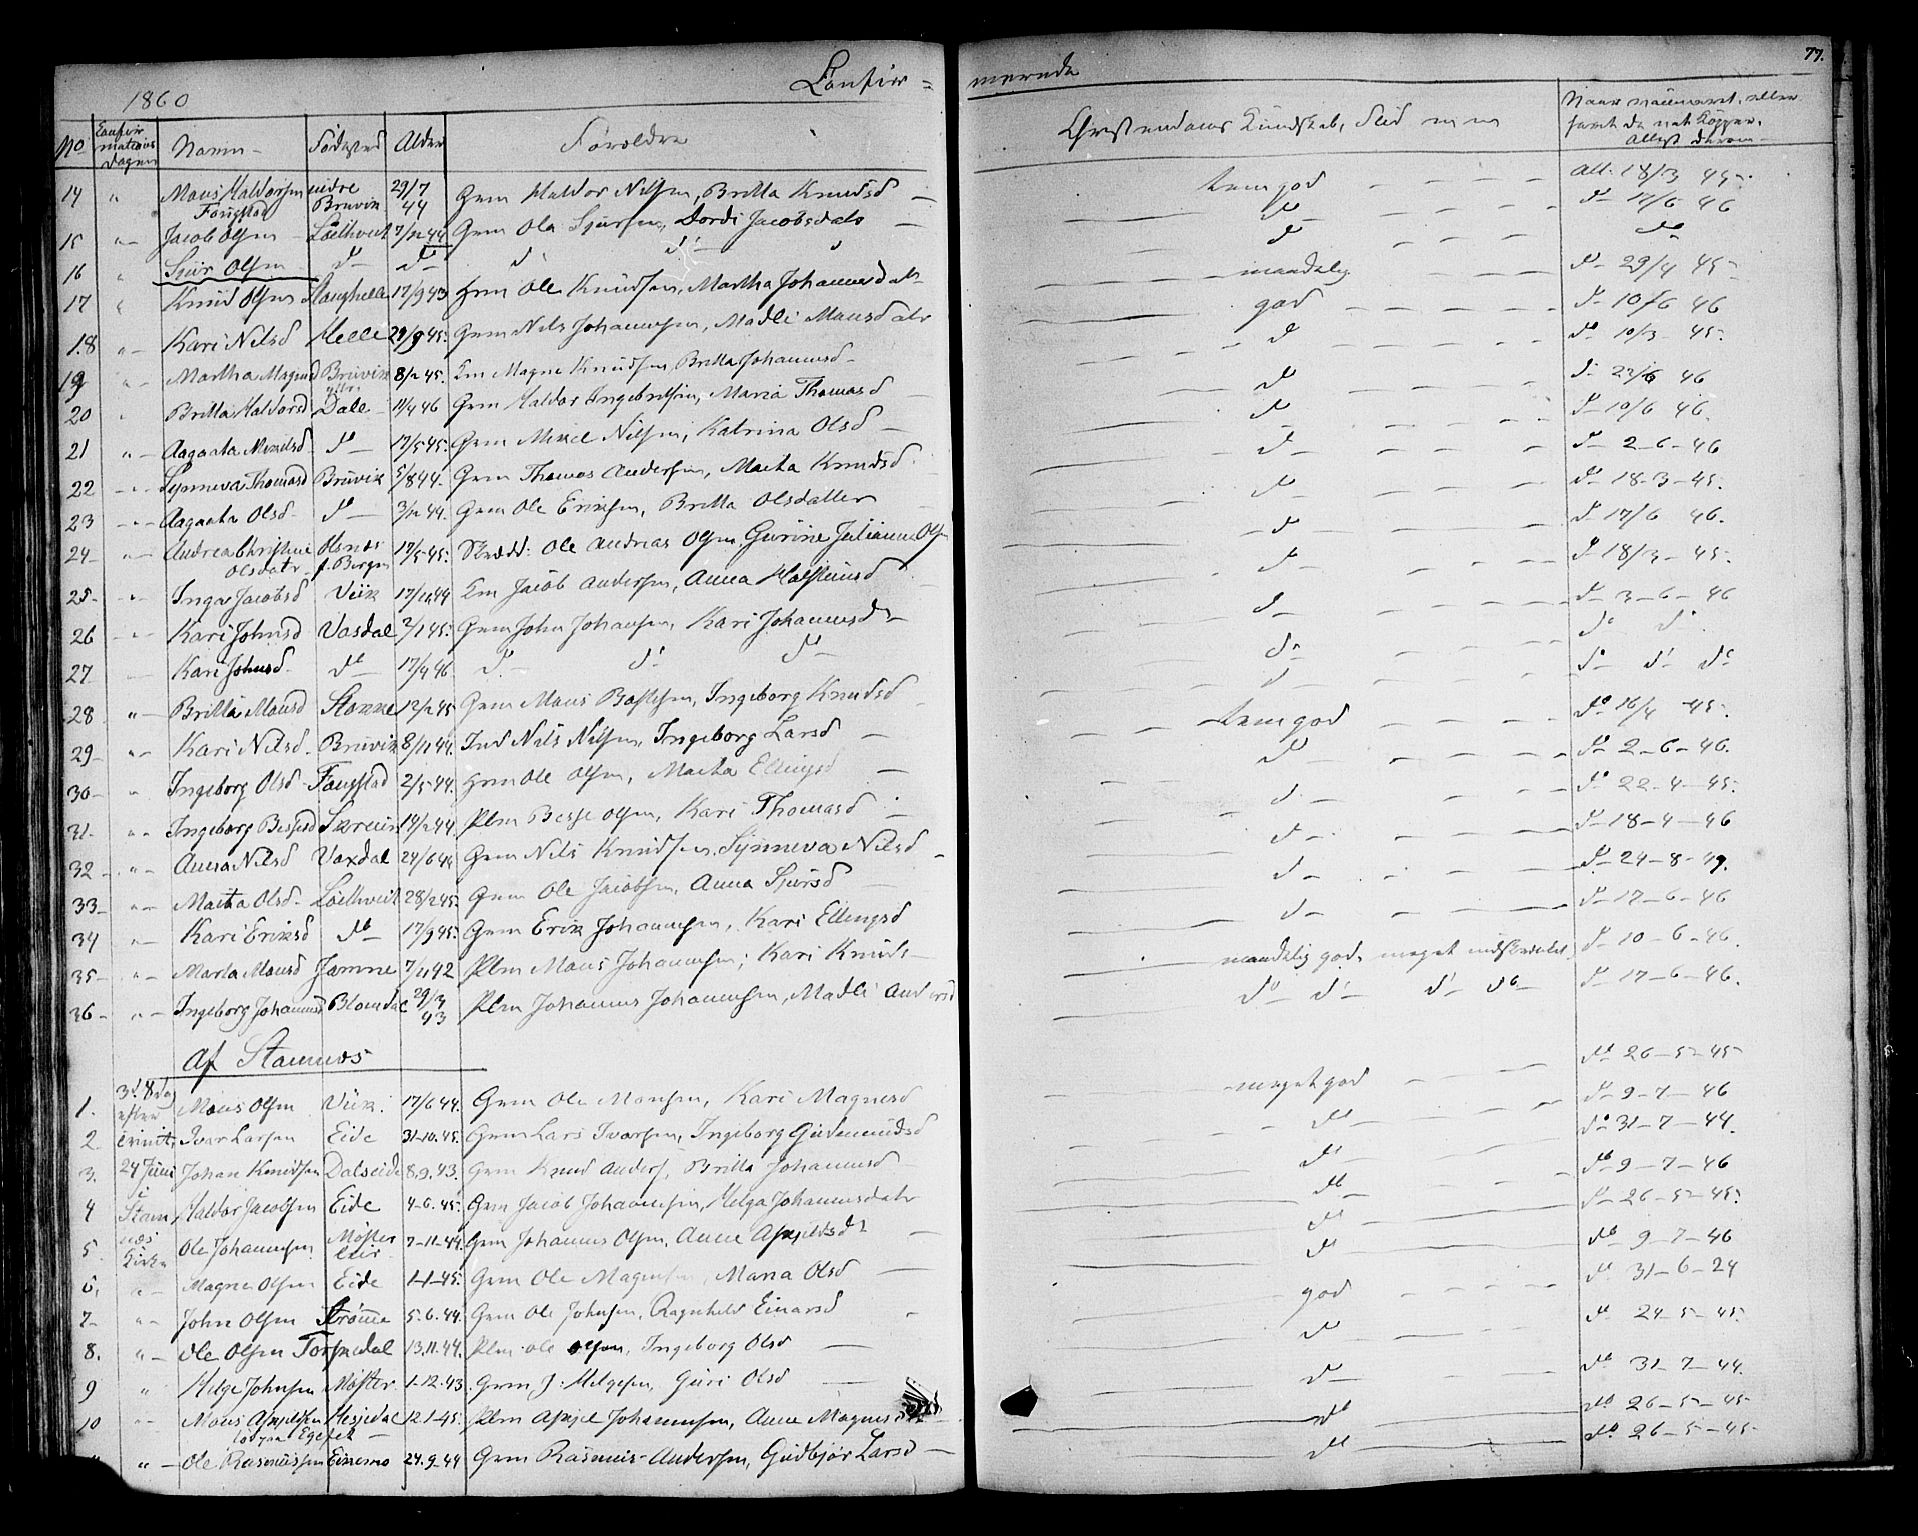 77.
1860 Confir=
merede
No Confirmations Dagen Navn Fødested Alder Forældre
Christendoms Kundskab, Flid
14 " Mons Haldorsen Fougstad nedre Bruvik 29/7 44 Grm Haldor Nilsen, Britta Knudsd temgod Att: 18/3 45
15 " Jacob Olsen 7/12 44 Grm Ole Sjursen, Dordi Jacobsdatr do do 14/6 46
16 " Sjur Olsen do do do do do do do
17 " Knud Olsen 17/9 43 Ole Knudsen, Martha Johannesdatr maadelig do 29/4 45
18 " Kari Nilsd Helle 29/9 45. Grm Nils Johannesen, Madli Monsdatr god do 10/6 46
19 " Martha Magnesd Bruvik 8/2 45. Em Magne Knudsen, Britta Johannesd do do 10/3 45.
20 " Britta Haldorsd Dale 11/4 46 Grm Haldor Ingebritsen, Maria Thomasd do do 46
21 " Aagaata Mikkelsd do 17/5 45. Grm Mikel Nilsen, Katrina Olsd do do 10/6 46.
22 " Synneva Thomasd Bruvik 5/8 44. Grm Thomas Andersen, Marta Knudsd do do 2-6-46
23 " Aagaata Olsd do 3/12 44. Grm Ole Eriksen, Britta Olsdatter do do 18-3-45.
24 " Andrea Christine Olsdatr f. Bergen 17/5 45. Skrædd: Ole Andreas Olsen, Gurine Juliane Ols do do 17/6 46.
25 " Inga Jacobsd Viik 17/11 44 Em Jacob Andersen, Anna do do 18/3 45.
26 " Kari Johnsd Vasdal 2/1 45. Grm John Johansen, Kari Johannesdr do do 3-6-46
27 Kari Johnsd do 17/4 46 do do do do do do
28 " Britta Monsd Stamne 12/2 45 Grm Mons Ingeborg Knudsd do do do do
29 " Kari Nilsd Bruvik 8/11 44. Ind Nils Nilsen, Ingeborg Larsd temgod do 16/4 45.
30 " Ingeborg Olsd Fougstad 2/5 44. Ole Olsen, Marta Ellingsd do do 2-6-46.
31 " Ingeborg Bessesd 14/2 44 Plm Besse Olsen, Kari Thomasd do do 22-4-45.
32 " Anna Nilsd Vaxdal 24/6 44 Grm Nils Knudsen, Synneva Nilsd do do 18-4-46
33 " Marta Olsd 28/2 45. Grm Ole Jacobsen, Anna Sjursd do do 24-8-49.
34 " Kari Eriksd do 17/9 45. Grm Erik Johannesen, Kari Ellingsd do do 17-6-46
35 " Marta Monsd Jamne 7/11 42 Plm Mons Johannesen; Kari Knuds maadelig god, meget indskrænket do 10-6-46.
36 " Ingeborg Johannesd Blomdal 29/3 43 Plm Johannes Johannesen, Madli Andersd do do do do do 17-6-46.
Af Stamnæs
1. 3d. S dag efter Mons Olsen Viik. 17/6 44. Grm Ole Monsen, Kari Magnesd meget god do 26-5-45
2 trinit. Ivar Larsen Eide 31-10.45. Grm Lars Ivarsen, Ingeborg Gudmundsd do do 9-7-46
3. 24 Juni Johan Knudsen Dalseide 8.9.43. Grm Knud Anders, Britta Johannesd do do 31-7-44.
4 i Stam Haldor Jacobsen Eide 4-6.45. Grm Jacob Johannesen, Helga Johannesdatr do do 9-7-46
5. næs Kirke Ole Johannesen 7-11-44. Grm Johannes Olsen, Anne do do 26-5-45.
6. " Magne Olsen Eide 1-1-45. Grm Ole Magnesen, Maria Olsd do do 9-7-46
7 " John Olsen Strømme 5.6.44. Grm Ole Johnsen, Ragnhild Einarsd god do 31-6-24
8. " Ole Olsen Torskedal 13.11.44. Plm Ole Olsen, Ingeborg Olsd do do 24.5-45.
9 " Helge Johnsen Møster 1-12.43. Grm J: Helgesen, Guri Olsd do do 31-7-44.
10 " Mons Apjelsen Hesjedal 12.1-45. Plm Apjel Johannesen, Anne Magnesd do do 26-5-45
" Ole Rasmussen 24.9-44 Grm Rasmus Andersen, Gudbjør Larsd do do 26-5-45.